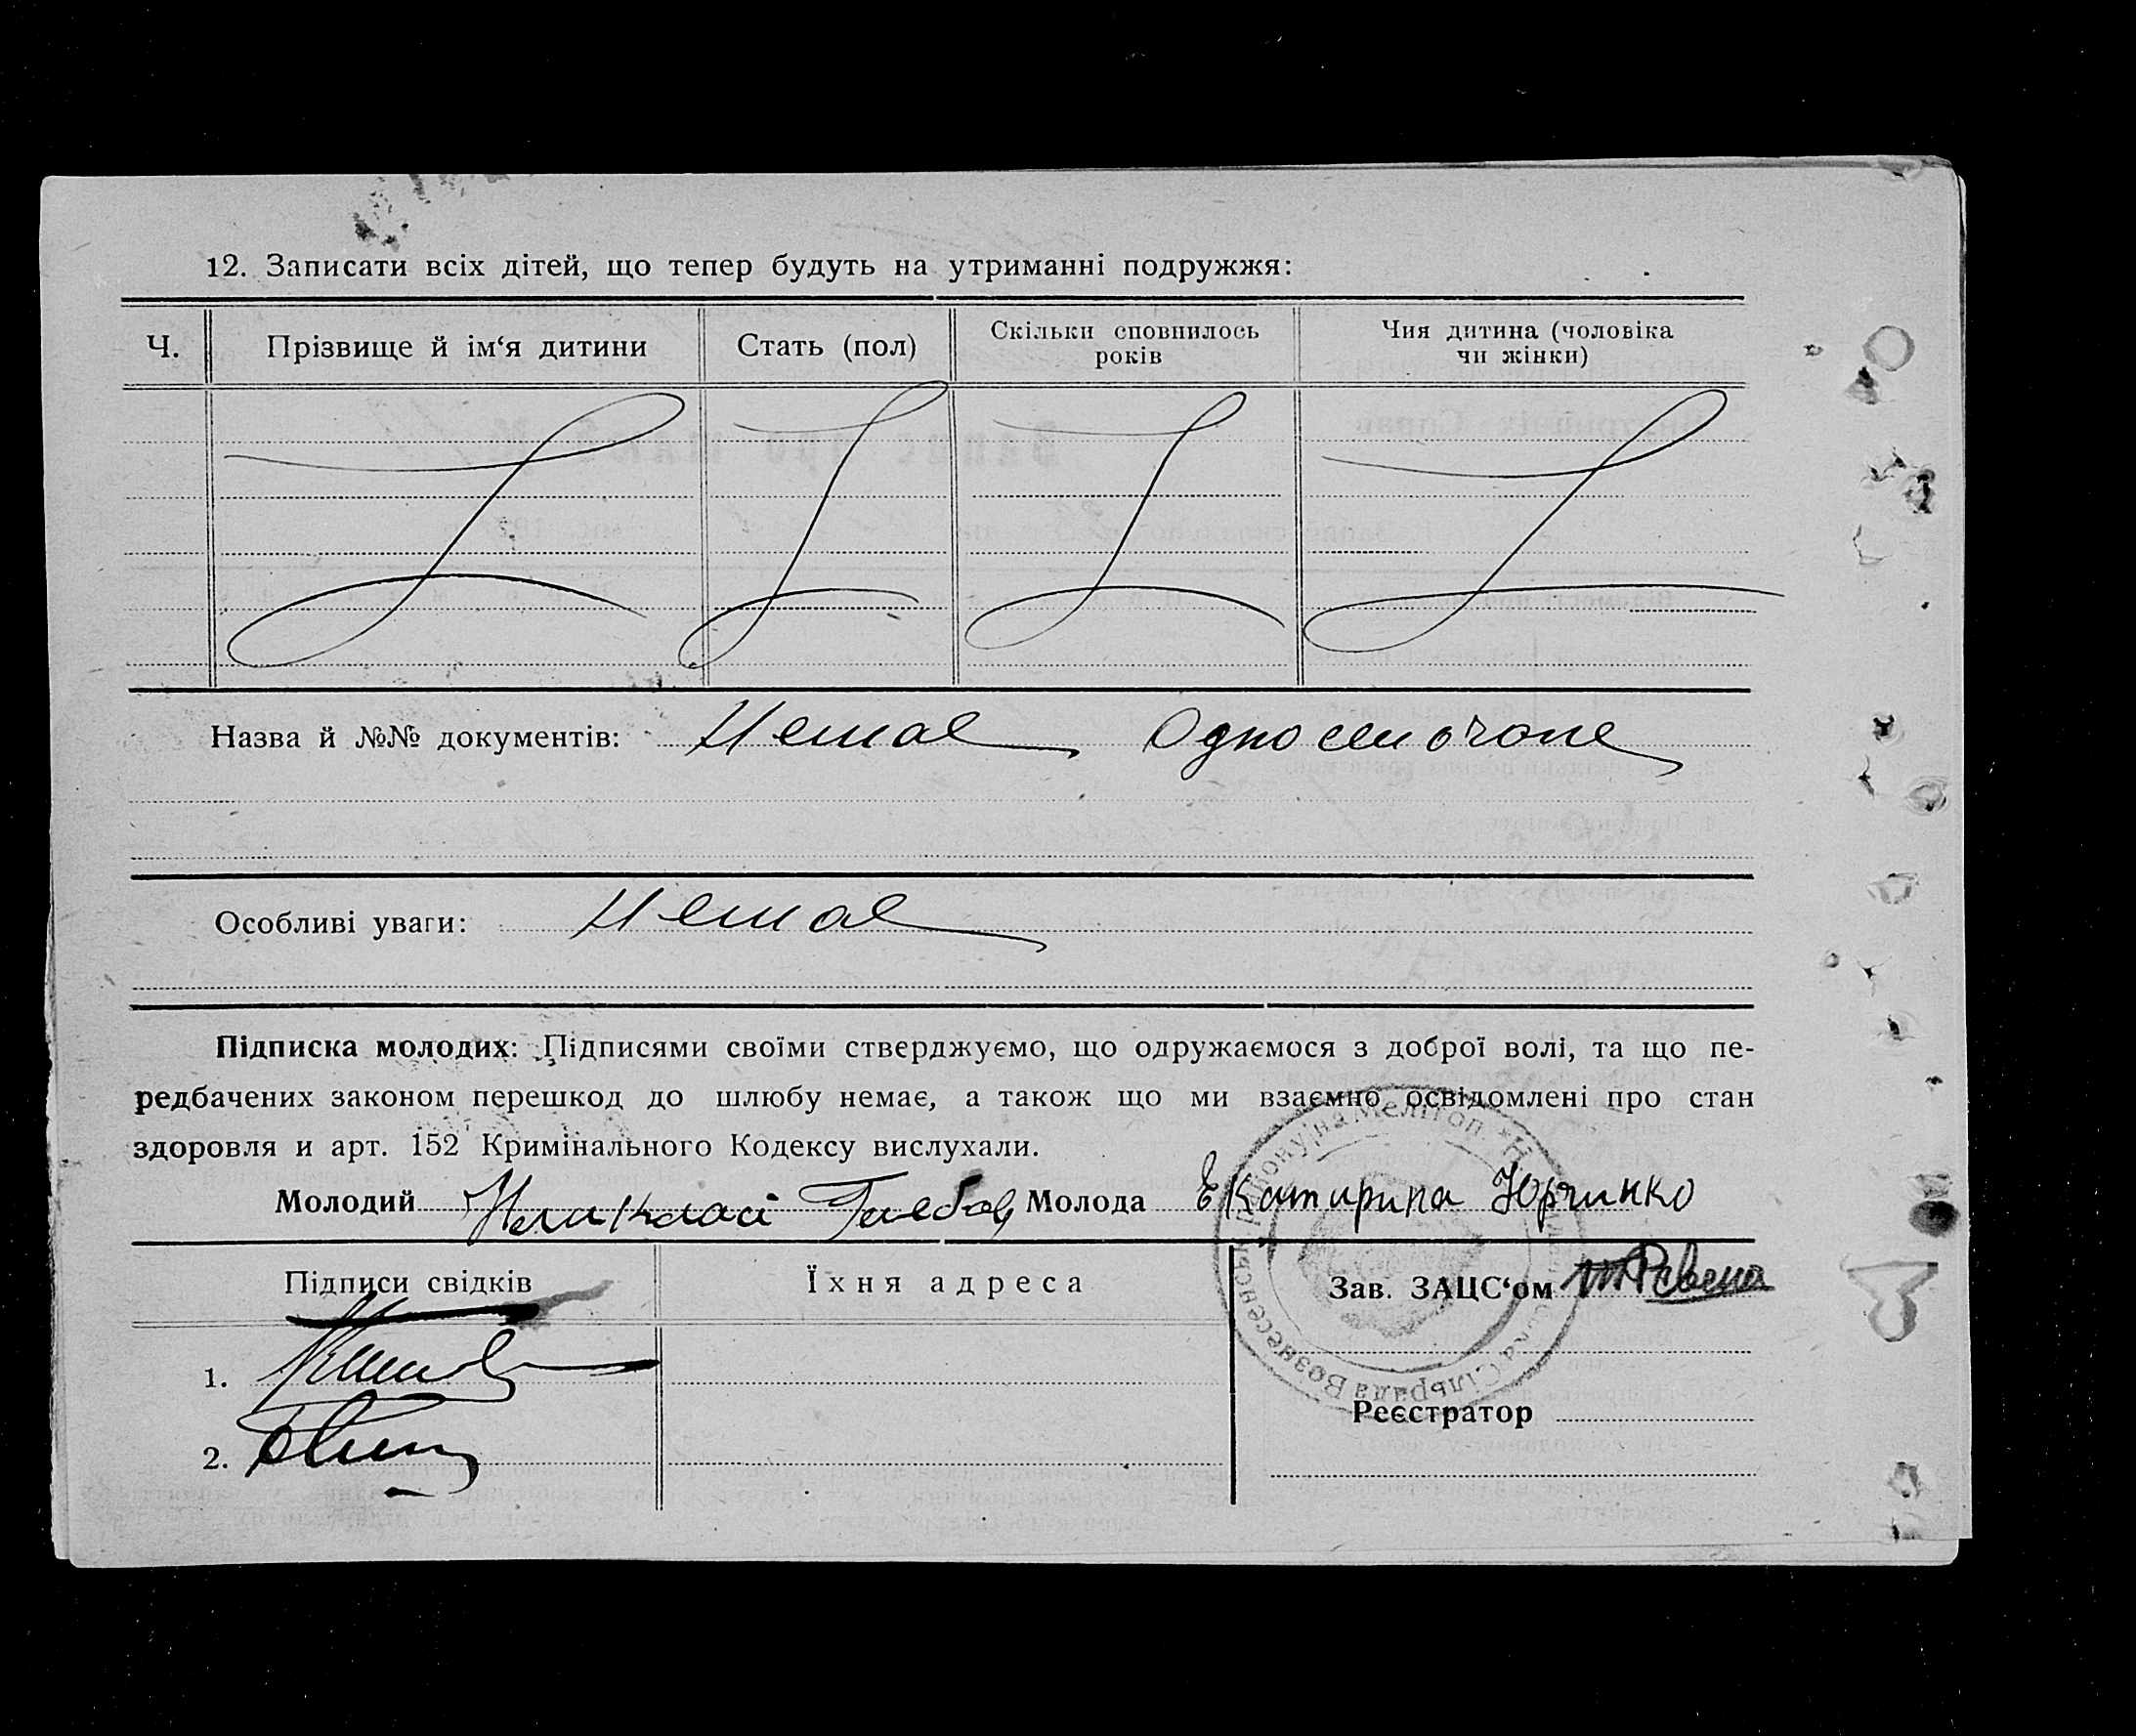 12. Записати всіх дітей, що тепер будуть на утриманні подружжя:
Ч. Прізвище й ім‘я дитини Стать (пол) Скільки сповнилось років Чия дитина (чоловіка чи жінки)
Назва й №№ документів: Немає Односелочане
Особливі уваги: Немає
Підписка молодих: Підписями своїми стверджуємо, що одружаємося з доброї волі, та що пе-
редбачених законом перешкод до шлюбу немає, а також що ми взаємно освідомлені про стан
здоровля и арт. 152 Кримінального Кодексу вислухали.
Молодий Глебов Молода Екатирина Юрчинко
Підписи свідків Їхня адреса Зав. ЗАЦС‘ом
1.
2.
Реєстратор
Сільрада Вознесенськ. району на Мелітоп.